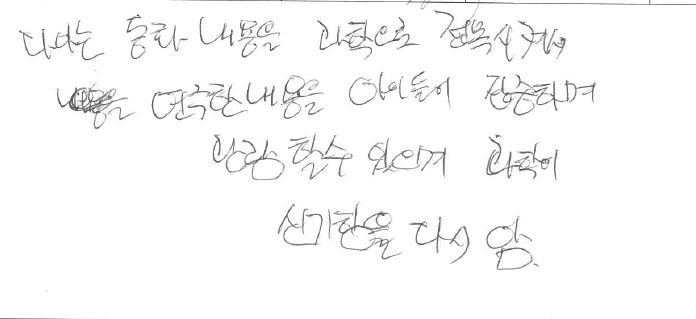 다나는 동화 내용을 과학으로 접목시켜서
내용을 연극한 내용을 아이들이 집중하며
관람 할수 있었게 과학이
신기함을 다시 앎.